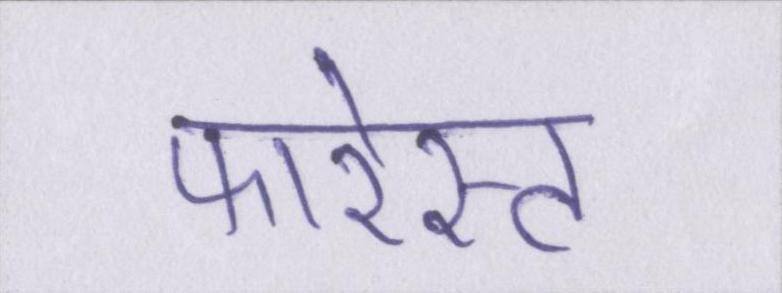 फारेस्ट